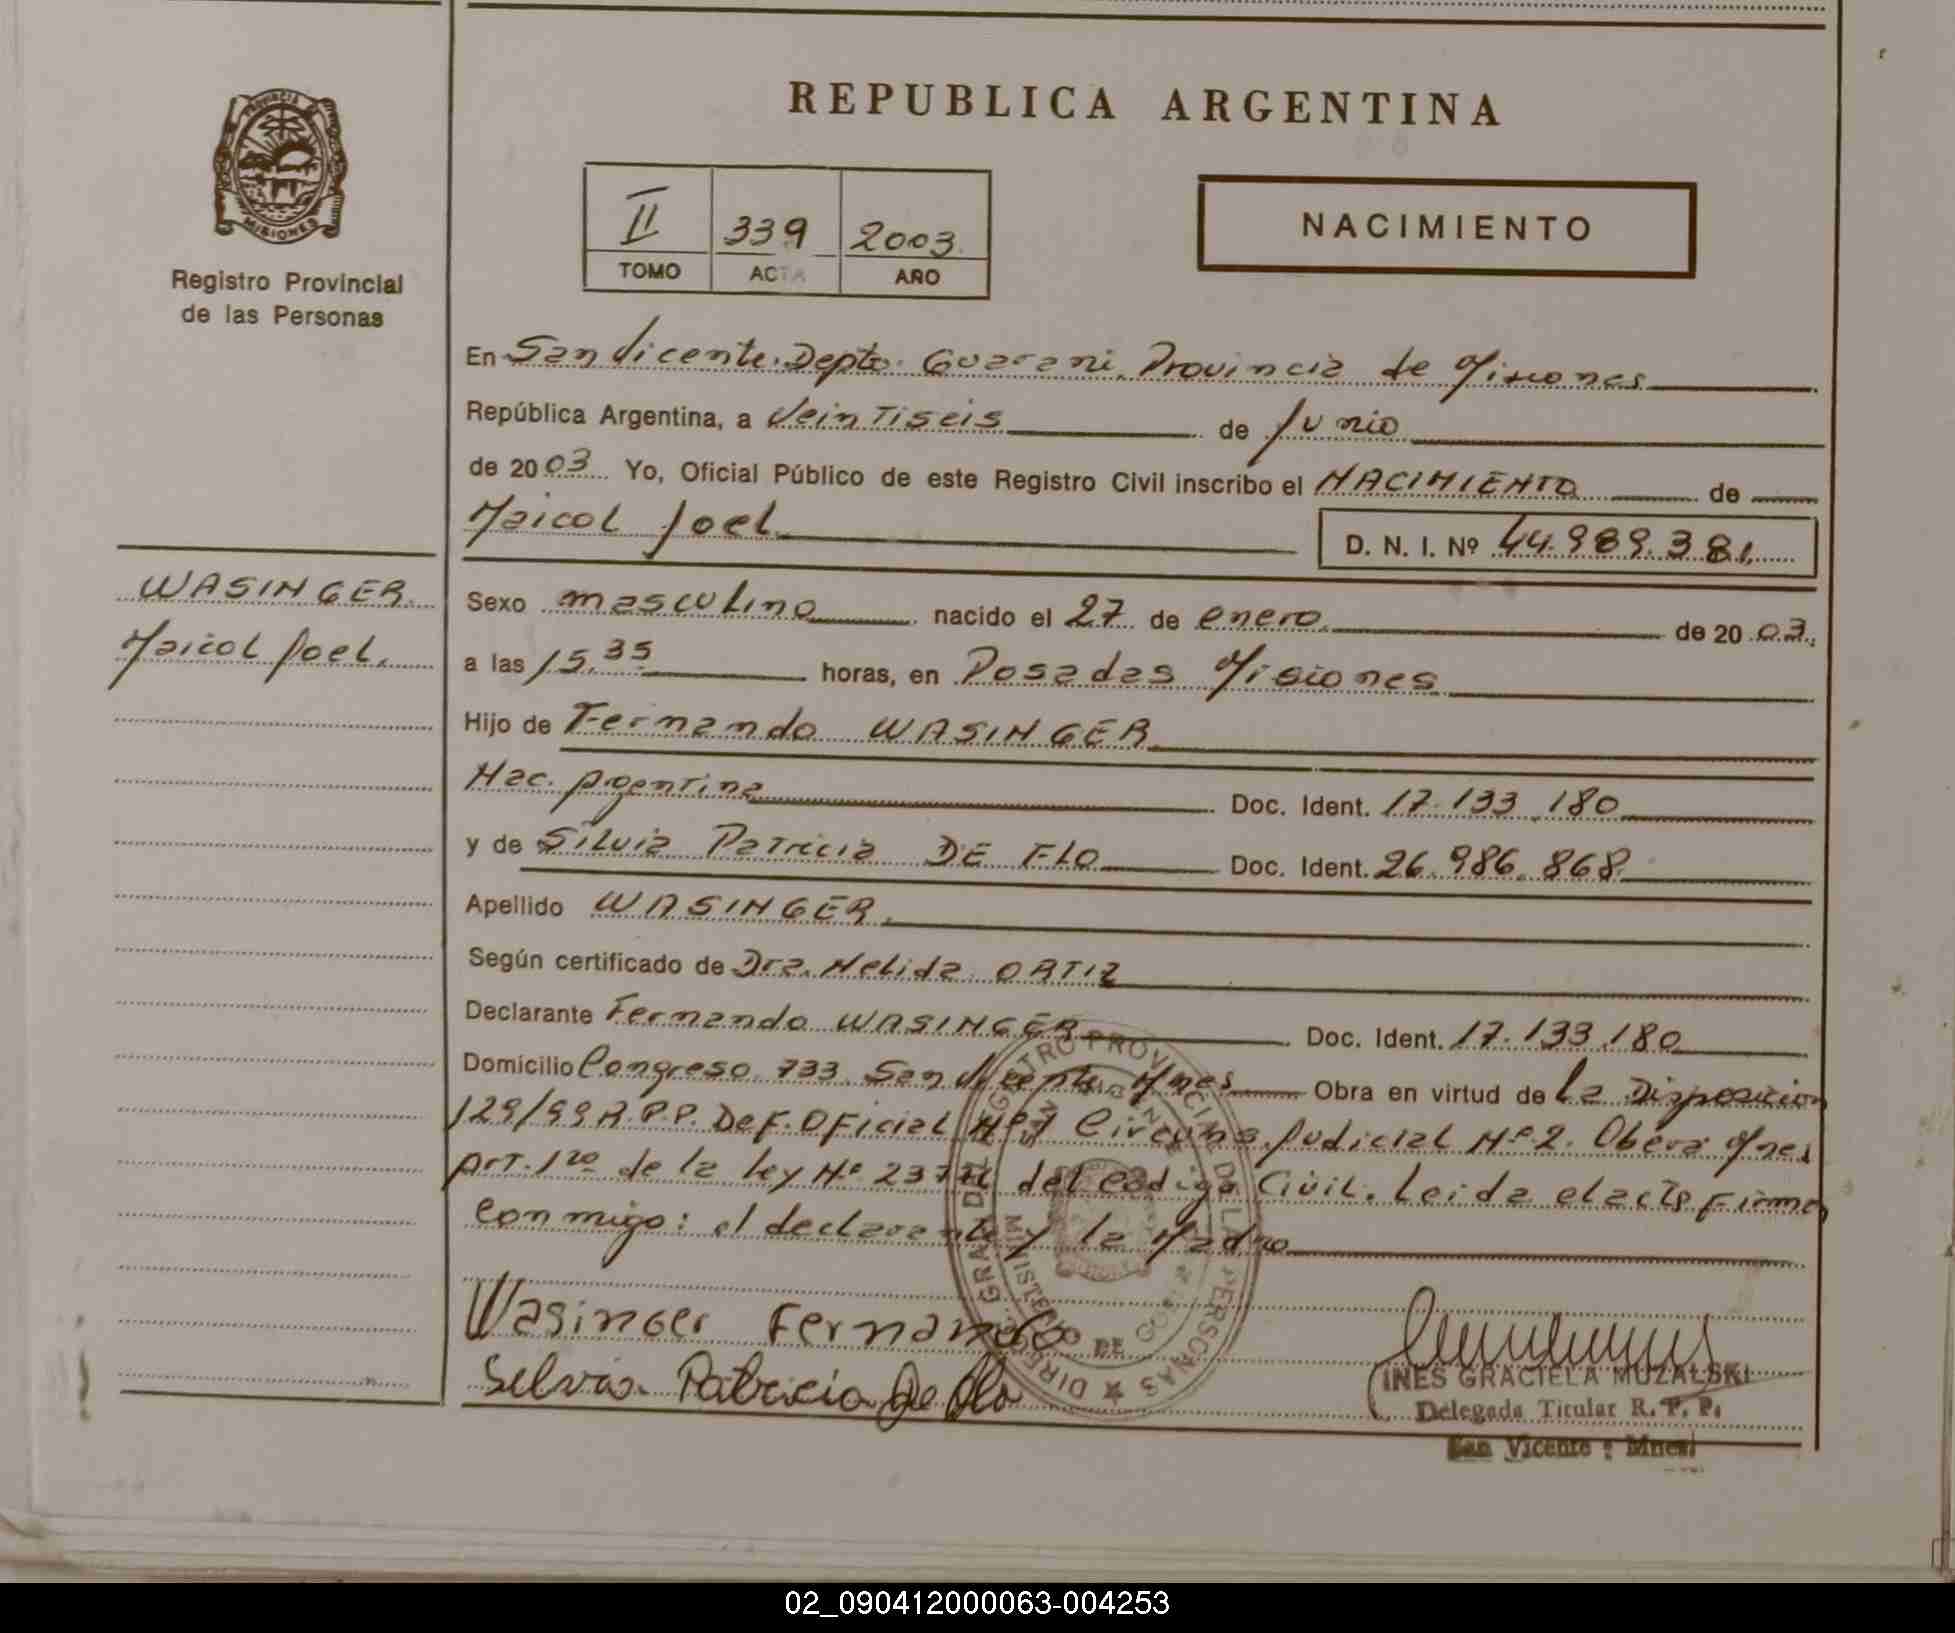 REPUBLICA ARGENTINA
PROVINCIA
MISIONES
Registro Provincial
de las Personas
II 339 2003
TOMO ACTA AÑO
NACIMIENTO
En San Vicente Depto. Guarani Provincia de Misiones
República Argentina, a Veintiseis de Junio
de 2003 Yo, Oficial Público de este Registro Civil inscribo el NACIMIENTO de
Maicol Joel D. N. I. Nº 44.989.381
WASINGER
Maicol Joel
Sexo masculino nacido el 27 de enero de 2003
a las 15.35 horas, en Posadas Misiones
Hijo de Fernando WASINGER
Nac. Argentina Doc. Ident. 17.133.180
y de Silvia Patricia DE FLO Doc. Ident. 26.986.868
Apellido WASINGER
Según certificado de Dra. Nelida ORTIZ
Declarante Fernando WASINGER Doc. Ident. 17.133.180
Domicilio Congreso 733 San Vicente Mnes Obra en virtud de la Disposicion
129/99 R.P.P. Def. Oficial Nº 1 Circuns. Judicial Nº 2. Obera Mnes
Art. 1ro de la ley Nº del Codigo Civil. Leida el acta firman
conmigo: el declarante y la Madre
Wasinger Fernando
Selvia Patricia De Flo
DIRECCION GRAL DEL REGISTRO PROVINCIAL DE LAS PERSONAS
MINISTERIO DE GOBIERNO
SAN VICENTE
INES GRACIELA MUZALSKI
Delegada Titular R. P. P.
San Vicente : Mnes
02_090412000063-004253